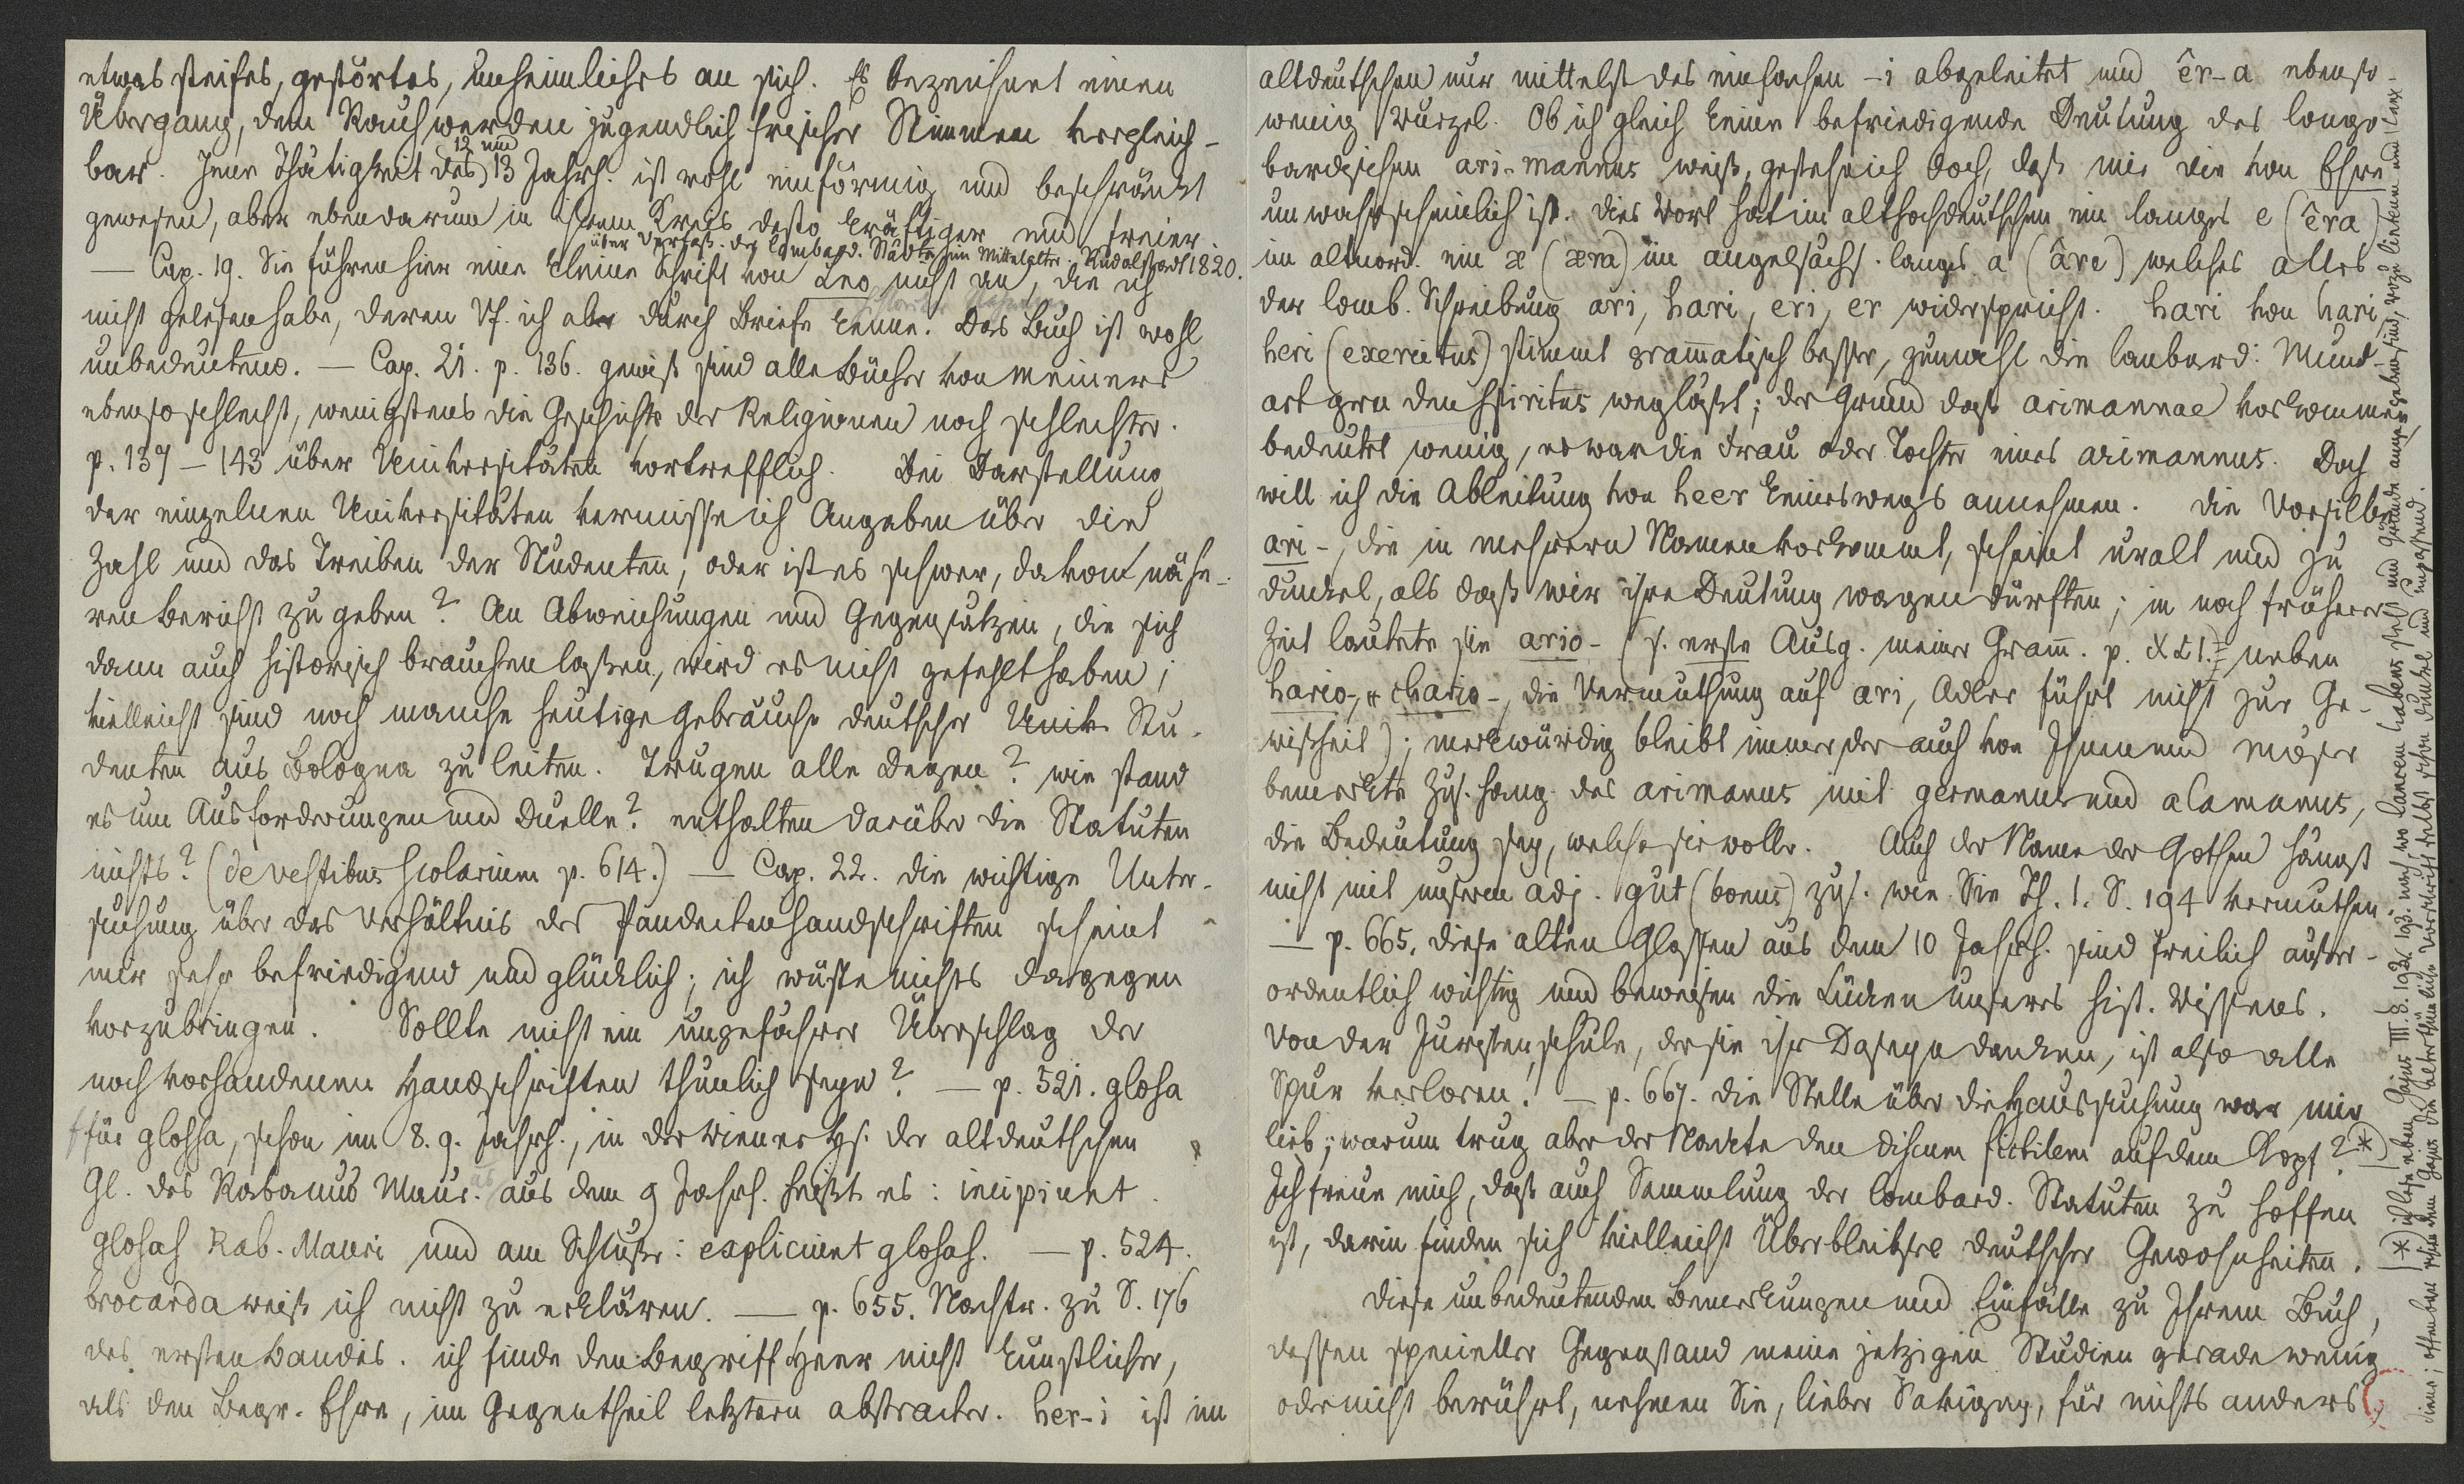 etwas steifes, gestörtes, unheimliches an sich. Es bezeichnet einen
Übergang, dem Rauhwerden jugendlich frischer Stimmen vergleich-
bar. Jene Thätigkeit des 12 und 13 Jahrh. ist wohl einförmig und beschränkt
gewesen, aber ebendarum in ihrem Kreis desto kräftiger und freier
über Verfaß. der lombard. Städte im Mittelalter. Rudolstadt 1820.
— Cap. 19. Sie führen hier eine kleine Schrift von Leo nicht an, die ich
nicht gelesen habe, deren Vf. ich aber durch Briefe kenne. Das Buch ist wohl
unbedeutend. — Cap. 21. p. 136. gewiß sind alle Bücher von Meiners
ebenso schlecht, wenigstens die Geschichte der Religionen noch schlechter.
p. 137 – 143 über Universitäten vortrefflich. Bei Darstellung
der einzelnen Universitäten vermisse ich Angaben über die
Zahl und das Treiben der Studenten, oder ist es schwer, davon nähe-
ren Bericht zu geben? An Abweichungen und Gegensätzen, die sich
dann auch historisch brauchen laßen, wird es nicht gefehlt haben;
vielleicht sind noch manche heutige Gebräuche deutscher Univ. Stu-
denten aus Bologna zu leiten. Trugen alle Degen? wie stand
es um Ausforderungen und Duelle? enthalten darüber die Statuten
nichts? (de vestibus scolarium p. 614.) — Cap. 22. die wichtige Unter-
suchung über das Verhältnis der Pandectenhandschriften scheint
mir sehr befriedigend und glücklich; ich wüste nichts dagegen
vorzubringen. Sollte nicht ein ungefährer Überschlag der
noch vorhandenen Handschriften thunlich seyn? — p. 521. glosa
für glossa, schon im 8. 9. Jahrh., in der Wiener Hs. der altdeutschen
Gl. des Rabanus Maur. aus dem 9 Jahrh. heißt es: incipiunt
glosas Rab. Mauri und am Schluße: expliciunt glosas. — p. 524.
brocarda weiß ich nicht zu erklären. — p. 655. Nachtr. zu S. 176
des ersten Bandes. ich finde den Begriff Heer nicht künstlicher,
als den Begr. Ehre, im Gegentheil letztern abstracter. her-i ist im
altdeutschen nur mittelst des einfachen -i abgeleitet und êr-a ebenso-
wenig Wurzel. Ob ich gleich keine befriedigende Deutung des longo-
bardischen ari-mannus weiß, gesteh ich doch, daß mir die von Ehre
unwahrscheinlich ist. dies Wort hat im althochdeutschen ein langes e (êra)
im altnord. ein æ (æra) im angelsächs. langes a (âre) welches alles
der lomb. Schreibung ari, hari, eri, er widerspricht. hari von hari,
heri (exercitus) stimmt grammatisch besser, zumahl die lanbard. Mund-
art gern den spiritus wegläßt; der Grund daß arimannae vorkommen
bedeutet wenig, es war die Frau oder Tochter eines arimannus. Doch
will ich die Ableitung von heer keineswegs annehmen. die Vorsilbe
ari-, die in mehrern Namen vorkommt, scheint uralt und zu
dunkel, als daß wir ihre Deutung wagen dürften; in noch früherer
Zeit lautete sie ario- (s. erste Ausg. meiner Gramm. p. XLI. neben
hario-, u. chario-, die Vermuthung auf ari, Adler führt nicht zur Ge-
wisheit); merkwürdig bleibt immer der auch von Ihnen und Möser
bemerkte Zus.hang des arimanus mit germanus und alamanus,
die Bedeutung sey, welche sie wolle. Auch der Name der Gothen hängt
nicht mit unserm adj. gut (bonus) zus. wie Sie Th. 1. S. 194 vermuthen.
— p. 665. diese alten Glossen aus dem 10 Jahrh. sind freilich außer-
ordentlich wichtig und beweisen die Lücken unseres hist. Wissens.
Von der Juristenschule, der sie ihr Daseyn danken, ist also alle
Spur verloren. — p. 667. die Stelle über die Haussuchung war mir
lieb; warum trug aber der Nackte den discum fictilem auf dem Kopf? *)
Ich freue mich, daß auch Sammlung der lombard. Statuten zu hoffen
ist, darin finden sich vielleicht Überbleibsel deutscher Gewohnheiten.
Diese unbedeutenden Bemerkungen und Einfälle zu Ihrem Buch,
dessen specieller Gegenstand meine jetzigen Studien gerade wenig
oder nicht berührt, nehmen Sie, lieber Savigny, für nichts anders
*) ich lese eben Gajus III. §. 192. 193. nach, wo lancem habens steht und Gründe angegeben sind, wozu linteum und lanx
diene; offenbar schien dem Gajus die alterthümliche Vorschrift selbst schon dunkel und unpassend.